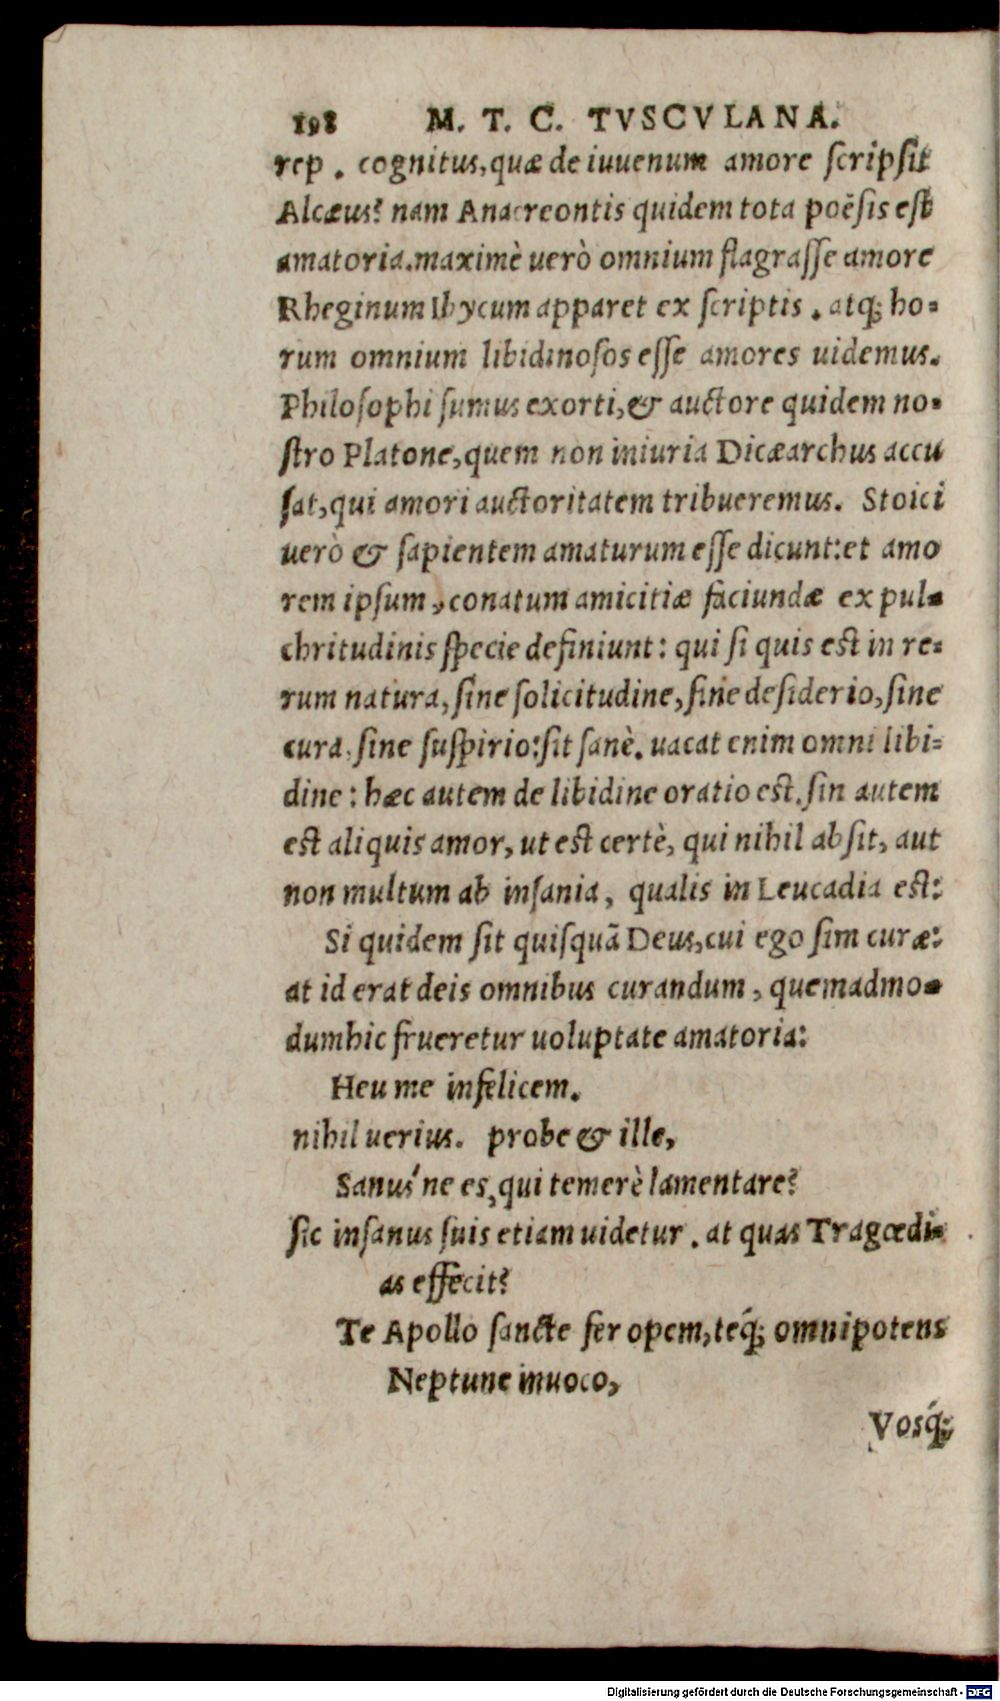 198 M. T. C. TVSCVLANA.
rep. cognitus, quæ de iuuenum amore scripsit
Alcæus? nam Anacreontis quidem tota poësis est
amatoria. maximè uerò omnium flagrasse amore
Rheginum Ibycum apparet ex scriptis. atq; ho-
rum omnium libidinosos esse amores uidemus.
Philosophi sumus exorti, & auctore quidem no-
stro Platone, quem non iniuria Dicæarchus accu
sat, qui amori auctoritatem tribueremus. Stoici
uerò & sapientem amaturum esse dicunt: et amo
rem ipsum, conatum amicitiæ faciundæ ex pul-
chritudinis specie definiunt: qui si quis est in re-
rum natura, sine solicitudine, sine desiderio, sine
cura, sine suspirio: sit sanè. uacat enim omni libi-
dine: hæc autem de libidine oratio est. sin autem
est aliquis amor, ut est certè, qui nihil absit, aut
non multum ab insania, qualis in Leucadia est:
Si quidem sit quisquã Deus, cui ego sim curæ:
at id erat deis omnibus curandum, quemadmo-
dum hic frueretur uoluptate amatoria:
Heu me infelicem.
nihil uerius. probe & ille,
Sanus'ne es, qui temerè lamentare?
sic insanus suis etiam uidetur. at quas Tragœdi-
as effecit?
Te Apollo sancte fer opem, teq́; omnipotens
Neptune inuoco,
Vosq́;
Digitalisierung gefördert durch die Deutsche Forschungsgemeinschaft - DFG